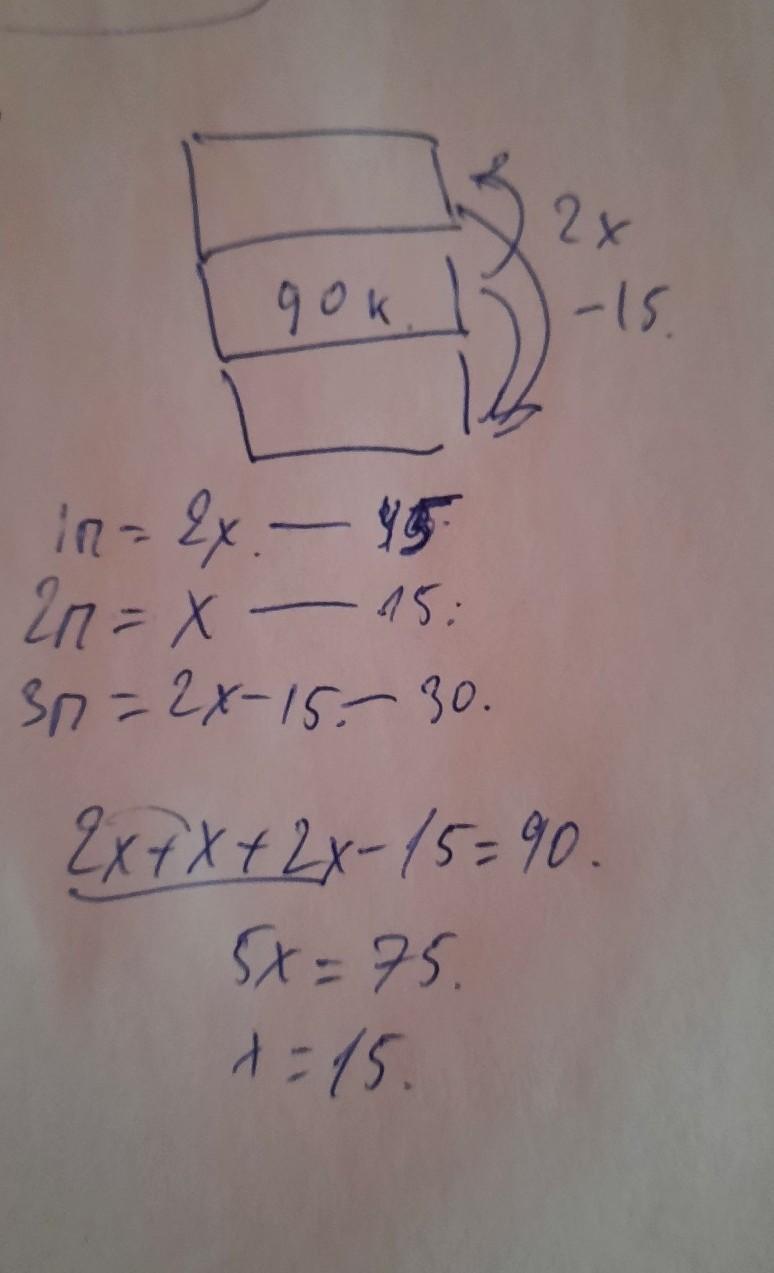 2x
90 к.
-15.
1п = 2x. — 45.
2п = x — 15.
3п = 2x-15. — 30.
2x+x+2x-15=90.
5x=75.
x=15.